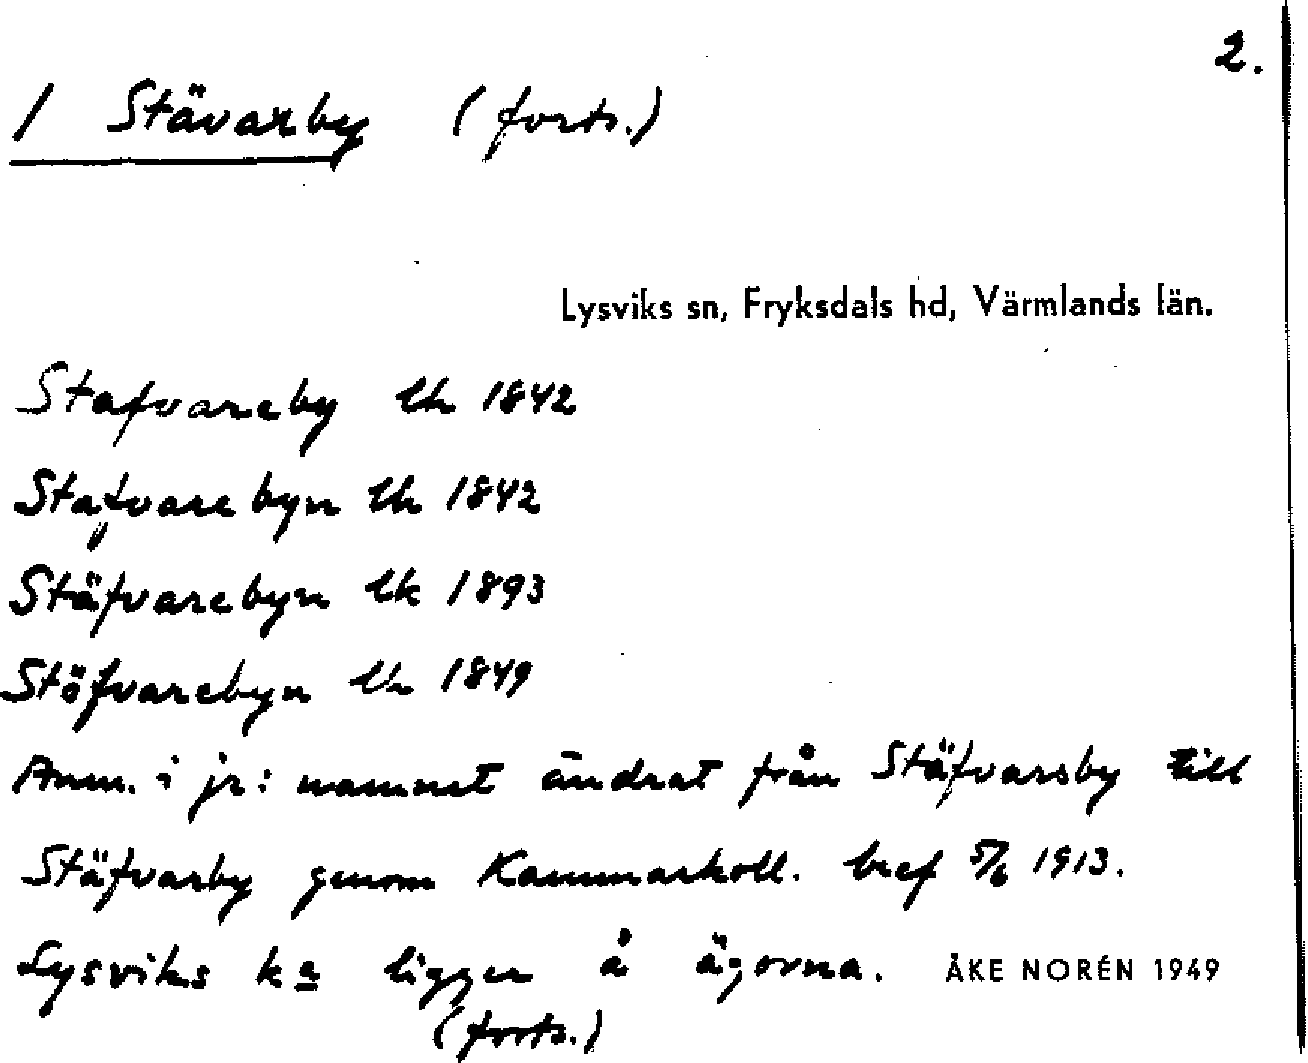 2.
/ Stävarby (forts.)
Lysviks sn, Fryksdals hd, Värmlands län.
Stafvareby lk 1842
Stafvarebyn lk 1842
Stäfvarebyn lk 1893
Stöfvarebyn lk 1849
Anm. i jr: namnet ändrat från Stäfvarsby till
Stäfvarby genom Kammarkoll. bref 5/6 1913.
Lysviks ka ligger å ägorna. ÅKE NORÉN 1949
(forts.)